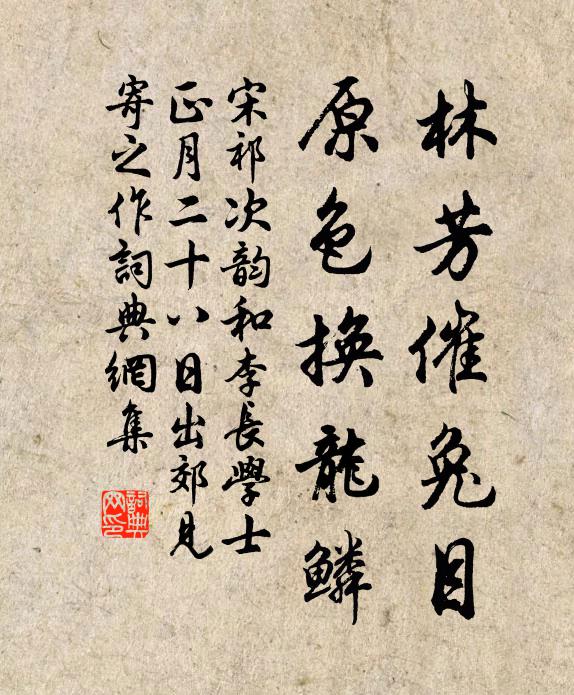 林芳催兔目
原色换龍鳞
宋祁次韵和李長學士
正月二十八日出郊見
寄之作詞典網集
詞典网印